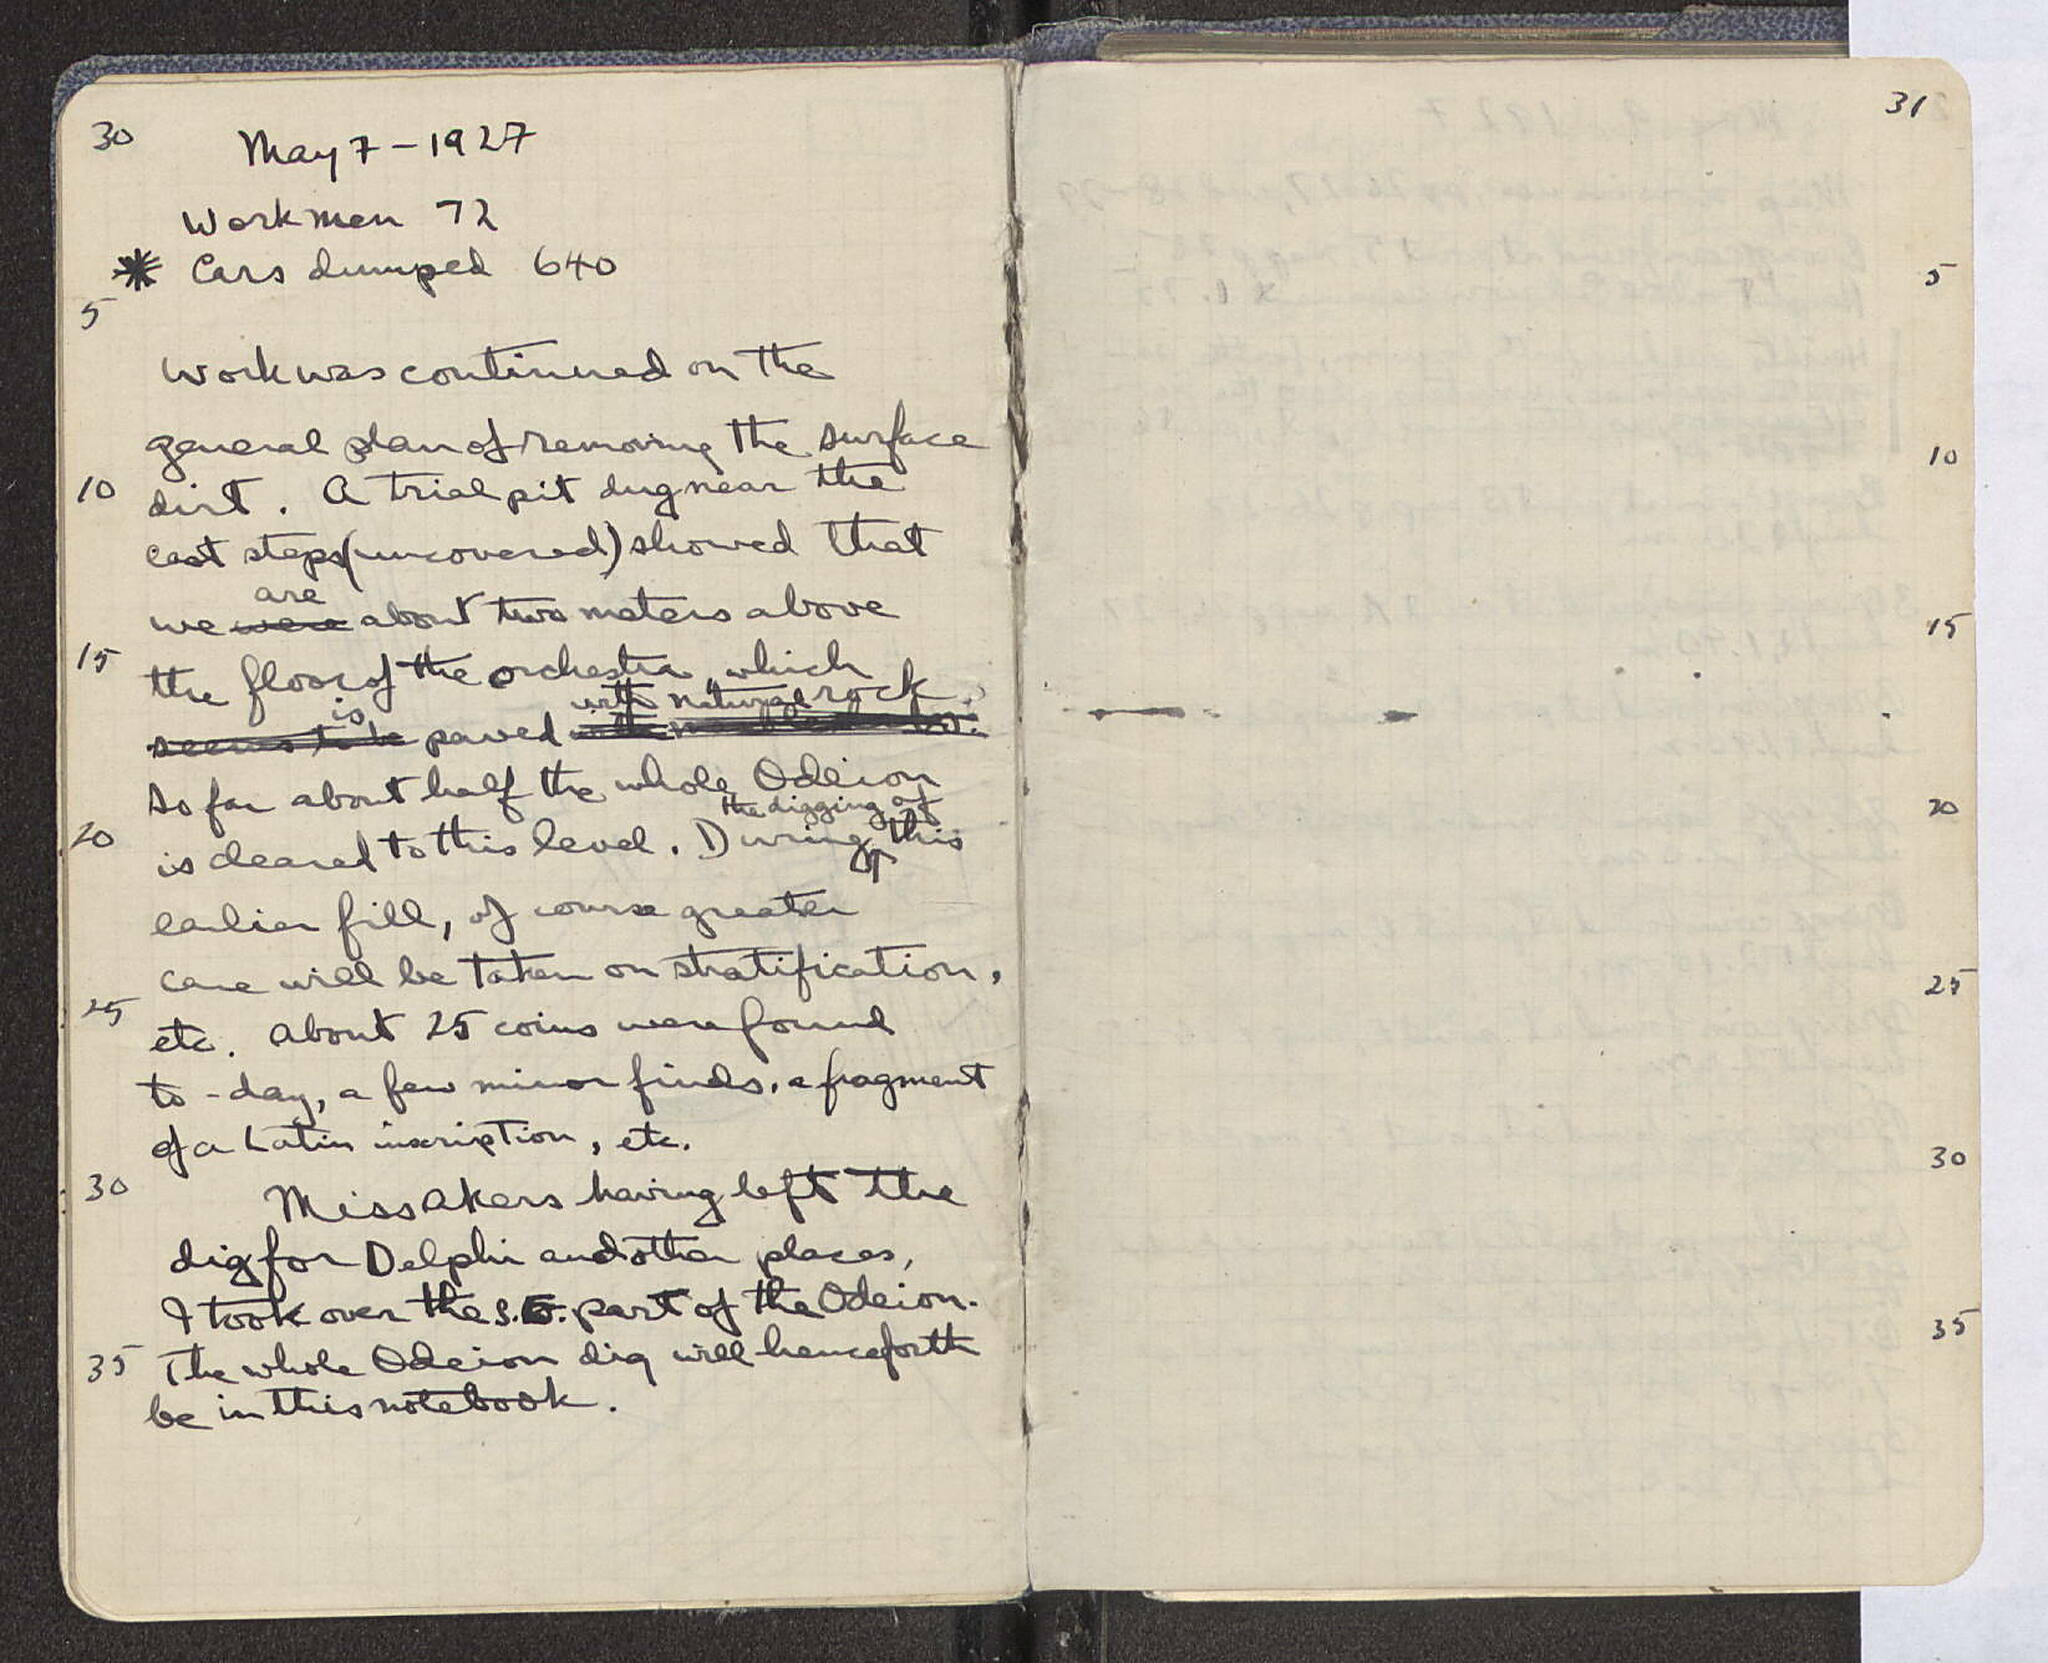 30
May 7 - 1927
Workmen 72
* Cars dumped 640
5
Work was continued on the
general plan of removing the surface
10
dirt. A trial pit dug near the
east steps (uncovered) showed that
are
we were about two meters above
15
the floor of the orchestra, which
is with natural rock.
seems to be paved with
So far about half the whole Odeion
the digging of
20
is cleared to this level. During this
earlier fill, of course greater
care will be taken on stratification,
25
etc. About 25 coins were found
to-day, a few minor finds, a fragment
of a Latin inscription, etc.
30
Miss Akers having left the
dig for Delphi and other places,
I took over the S.E. part of the Odeion.
35
The whole Odeion dig will henceforth
be in this notebook.
31
5
10
15
20
25
30
35